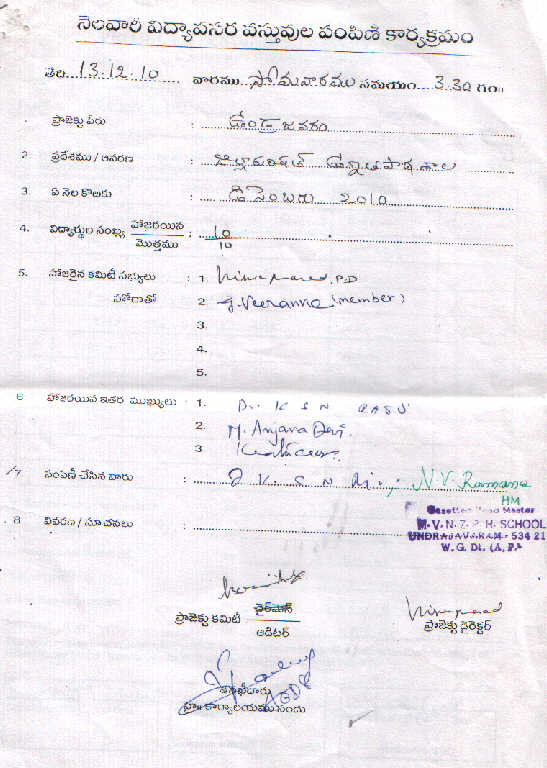 నెలవారీ విద్యావసర వస్తువుల పంపిణీ కార్యక్రమం
తేది. 13.12.10 వారము. సోమవారము సమయం. 3.30 గం.
ప్రాజెక్టు పేరు : ఉండ్రాజవరం
2 ప్రదేశము / ఆవరణ : జిల్లాపరిషత్ ఉన్నతపాఠశాల
3. ఏ నెల కొఱకు : డిసెంబరు 2010
4. విద్యార్థుల సంఖ్య హాజరయిన : 10
మొత్తము 10
5. హాజరైన కమిటీ సభ్యులు : 1. P.D
సహోగాతో 2 G. Veeranna (member)
3.
4.
5.
6 హాజరయిన ఇతర ముఖ్యులు : 1. Dr. K S N RASU
2. M. Anjana Devi.
3
7 పంపిణీ చేసిన వారు : K. S. N N.V. Ramana
HM
8 వివరణ / సూచనలు :
Gazetted Head Master
M.V.N.Z.P.H. SCHOOL
UNDRAJAVARAM - 534 21
W. G. Dt. (A. P.
ప్రాజెక్టు కమిటీ చైర్మన్
ఆడిటర్
ప్రాజెక్టు డైరెక్టర్
కార్యాలయము నందు